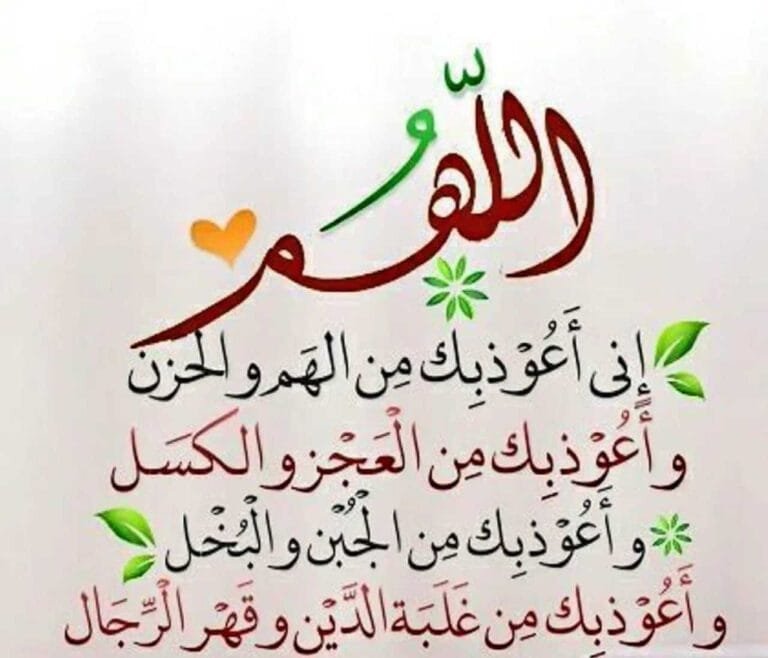 اللّهُم
إنى أَعُوْذبِك مِن الهَم والحزن
وأَعُوْذبِك مِن الْعَجْز والكسَل
وأَعُوْذبِك مِن الجُبْن والبُخْل
وأَعُوْذبِك مِن غَلَبَة الدَّيْن وقَهْر الرِّجَال